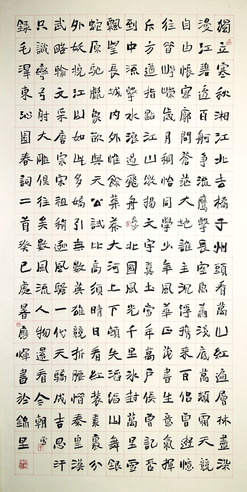 獨立寒秋湘江北去橘子州頭看萬山紅遍層林盡
染漫江碧透百舸爭流鷹擊長空魚翔淺底萬類霜天競
自由悵寥廓問蒼茫大地誰主沉浮攜來百侶曾遊憶
往昔崢嶸歲月稠恰同學少年風華正茂書生意氣揮
斥方遒指點江山激揚文字糞土當年萬戶侯曾記否
到中流擊水浪遏飛舟北國風光千里冰封萬里雪
飄望長城內外惟餘莽莽大河上下頓失滔滔山舞銀
蛇原馳蠟象欲與天公試比高須晴日看紅裝素裹分
外妖嬈江山如此多嬌引無數英雄競折腰惜秦皇漢
武略輸文采唐宗宋祖稍遜風騷一代天驕成吉思汗
只識彎弓射大雕俱往矣數風流人物還看今朝
錄毛澤東沁園春詞二首癸巳處暑應輝書於錦里